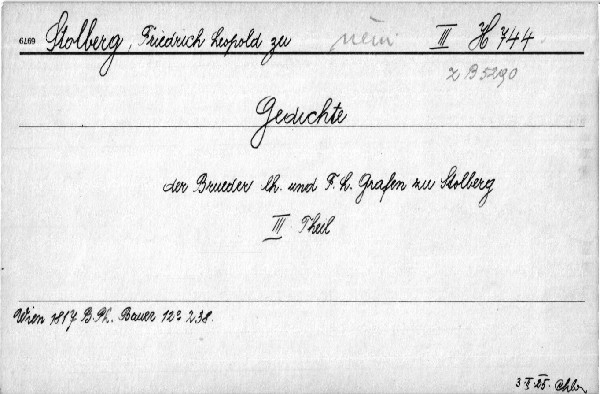 6979 Stolberg, Friedrich Leopold zu něm. III H 744.
2 B 5290
Gedichte
der Brueder Ch. und F. L. Grafen zu Stolberg
III Theil
Wien 1817 B. Ph. Bauer 12° 238.
3 II 25.